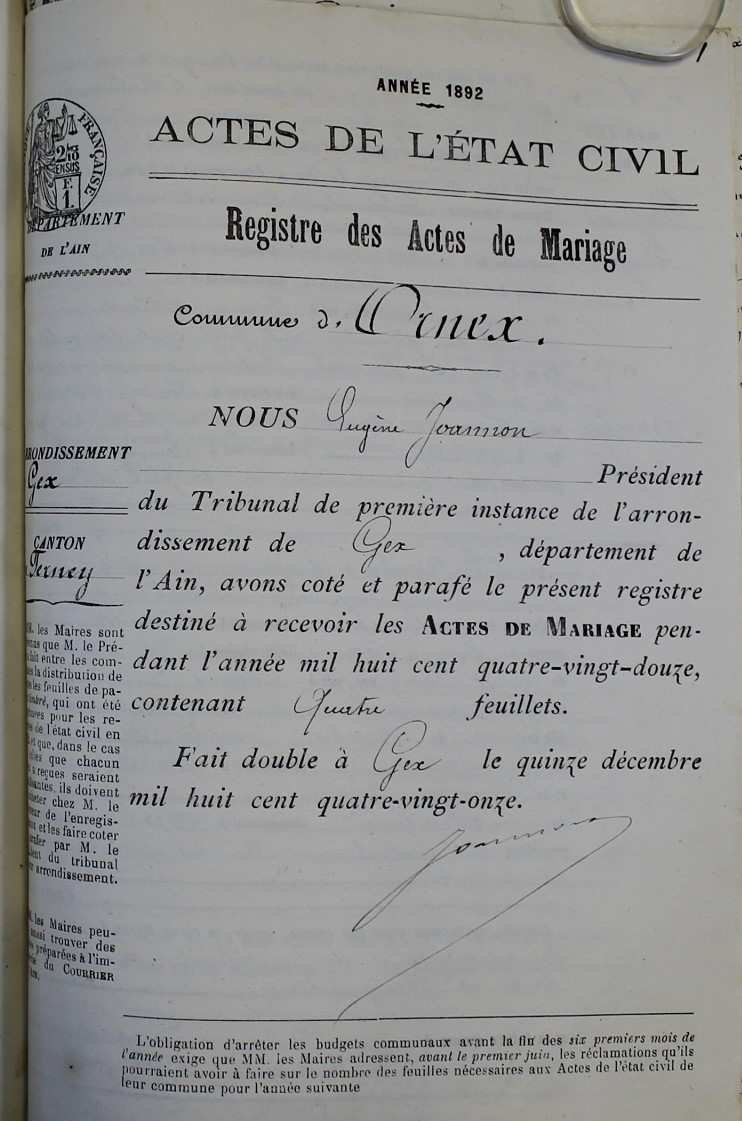 1
ANNÉE 1892
ACTES DE L'ÉTAT CIVIL
FRANÇAISE
2/10
EN SUS
F.
1.
DÉPARTEMENT
DE L'AIN
Registre des Actes de Mariage
Commune d' Ornex.
NOUS Eugène Joannon
Président
du Tribunal de première instance de l'arron-
dissement de Gex, département de
l'Ain, avons coté et parafé le présent registre
destiné à recevoir les ACTES DE MARIAGE pen-
dant l'année mil huit cent quatre-vingt-douze,
contenant Quatre feuillets.
Fait double à Gex le quinze décembre
mil huit cent quatre-vingt-onze.
Joannon
RONDISSEMENT
Gex
CANTON
Ferney
les Maires sont
que M. le Pré-
fait entre les com-
la distribution de
les feuilles de pa-
, qui ont été
pour les re-
de l'état civil en
et que, dans le cas
que chacun
reçues seraient
, ils doivent
chez M. le
de l'enregis-
et les faire coter
par M. le
du tribunal
arrondissement.
les Maires peu-
trouver des
préparées à l'im-
du COURRIER
L'obligation d'arrêter les budgets communaux avant la fin des six premiers mois de
l'année exige que MM. les Maires adressent, avant le premier juin, les réclamations qu'ils
pourraient avoir à faire sur le nombre des feuilles nécessaires aux Actes de l'état civil de
leur commune pour l'année suivante